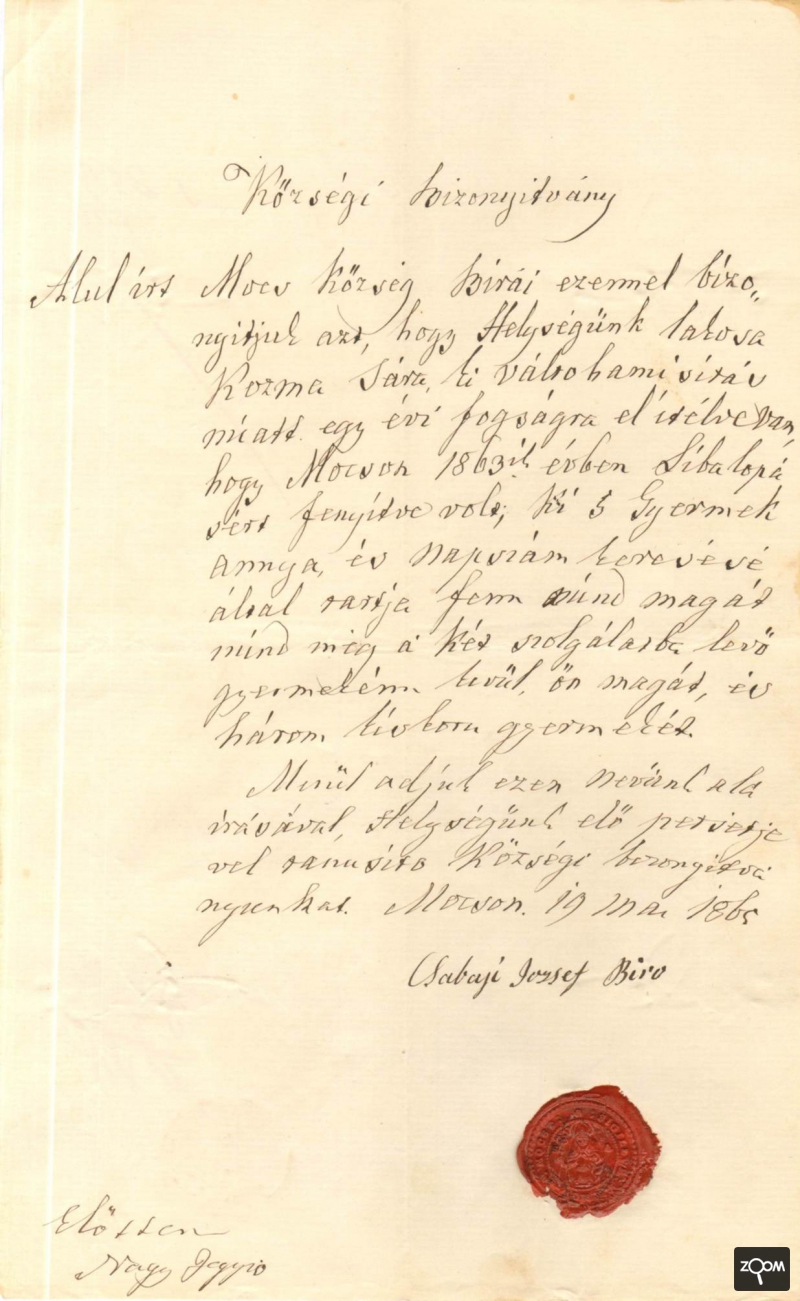 Községi bizonyitvány
Alulirt Mocs Község birái ezennel bizo„
nyitjuk azt, hogy Helységünk lakosa
Kozma Sára, ki váltohamisitás
miatt egy évi fogságra el itélve van,
hogy Mocson 1863ik évben Libalopá
sért fenyitve volt; Ki 5 Gyermek
annya, és napszám keresésé
által tartja fenn mind magát
mind meg a két szolgálatba levö
gyermekénn kivül, ön magát, és
három kiskoru gyermekét.
Miröl adjuk ezen nevünk alá
irásával, Helységünk elö petsetje
vel tanusito Községi bizonyitvá
nyunkat. Mocson. 19 Mai 1865
Csabaji Jozsef Biro
Elöttem
Nagy Jegyzo
ZOOM